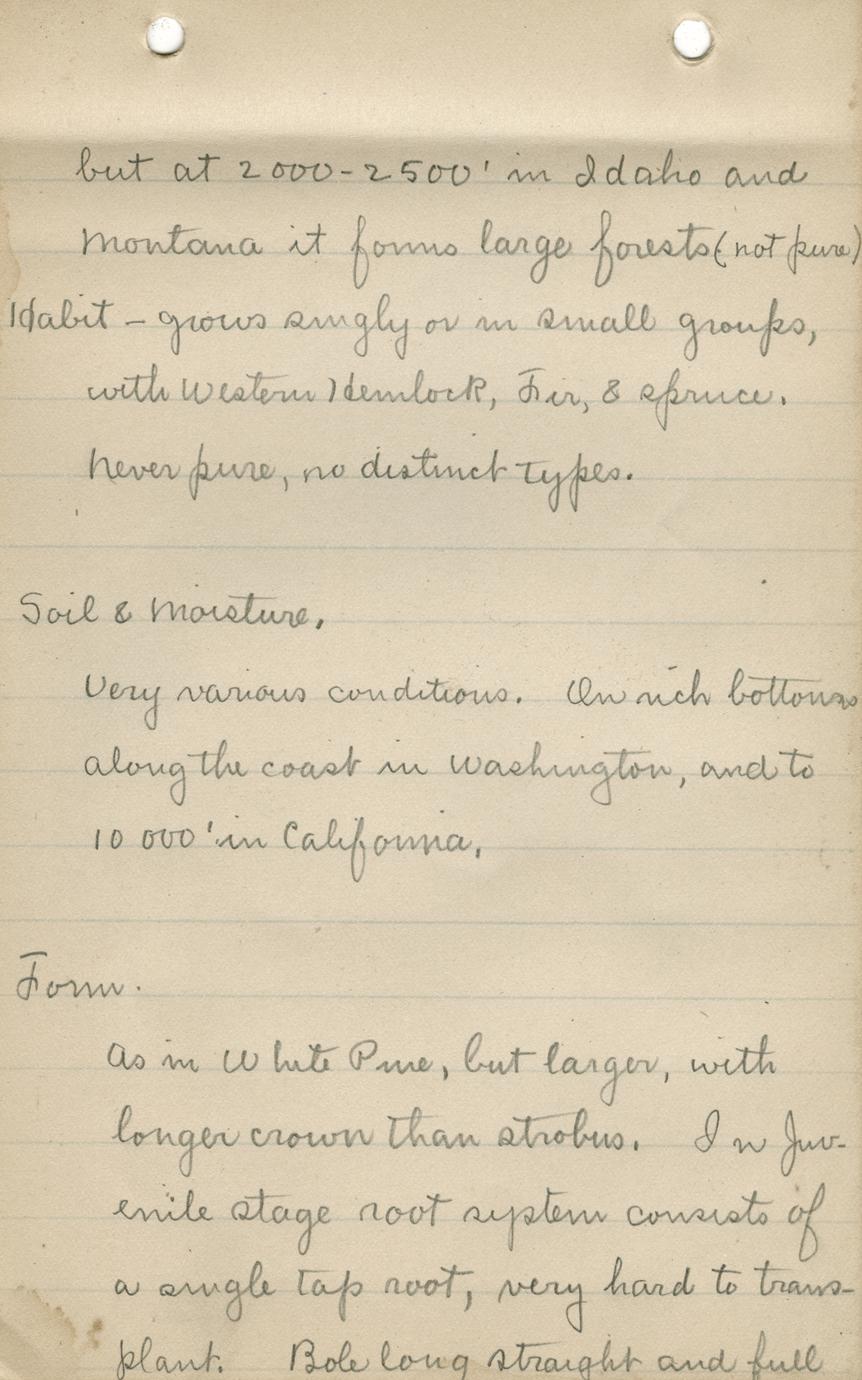 but at 2000-2500' in Idaho and
Montana it forms large forests (not pure)
Habit - grows singly or in small groups,
with Western Hemlock, Fir, & spruce.
Never pure, no distinct types.
Soil & Moisture.
Very various conditions. On rich bottoms
along the coast in Washington, and to
10 000' in California.
Form.
As in White Pine, but larger, with
longer crown than strobus. In Juv-
enile stage root system consists of
a single tap root, very hard to trans-
plant. Bole long straight and full